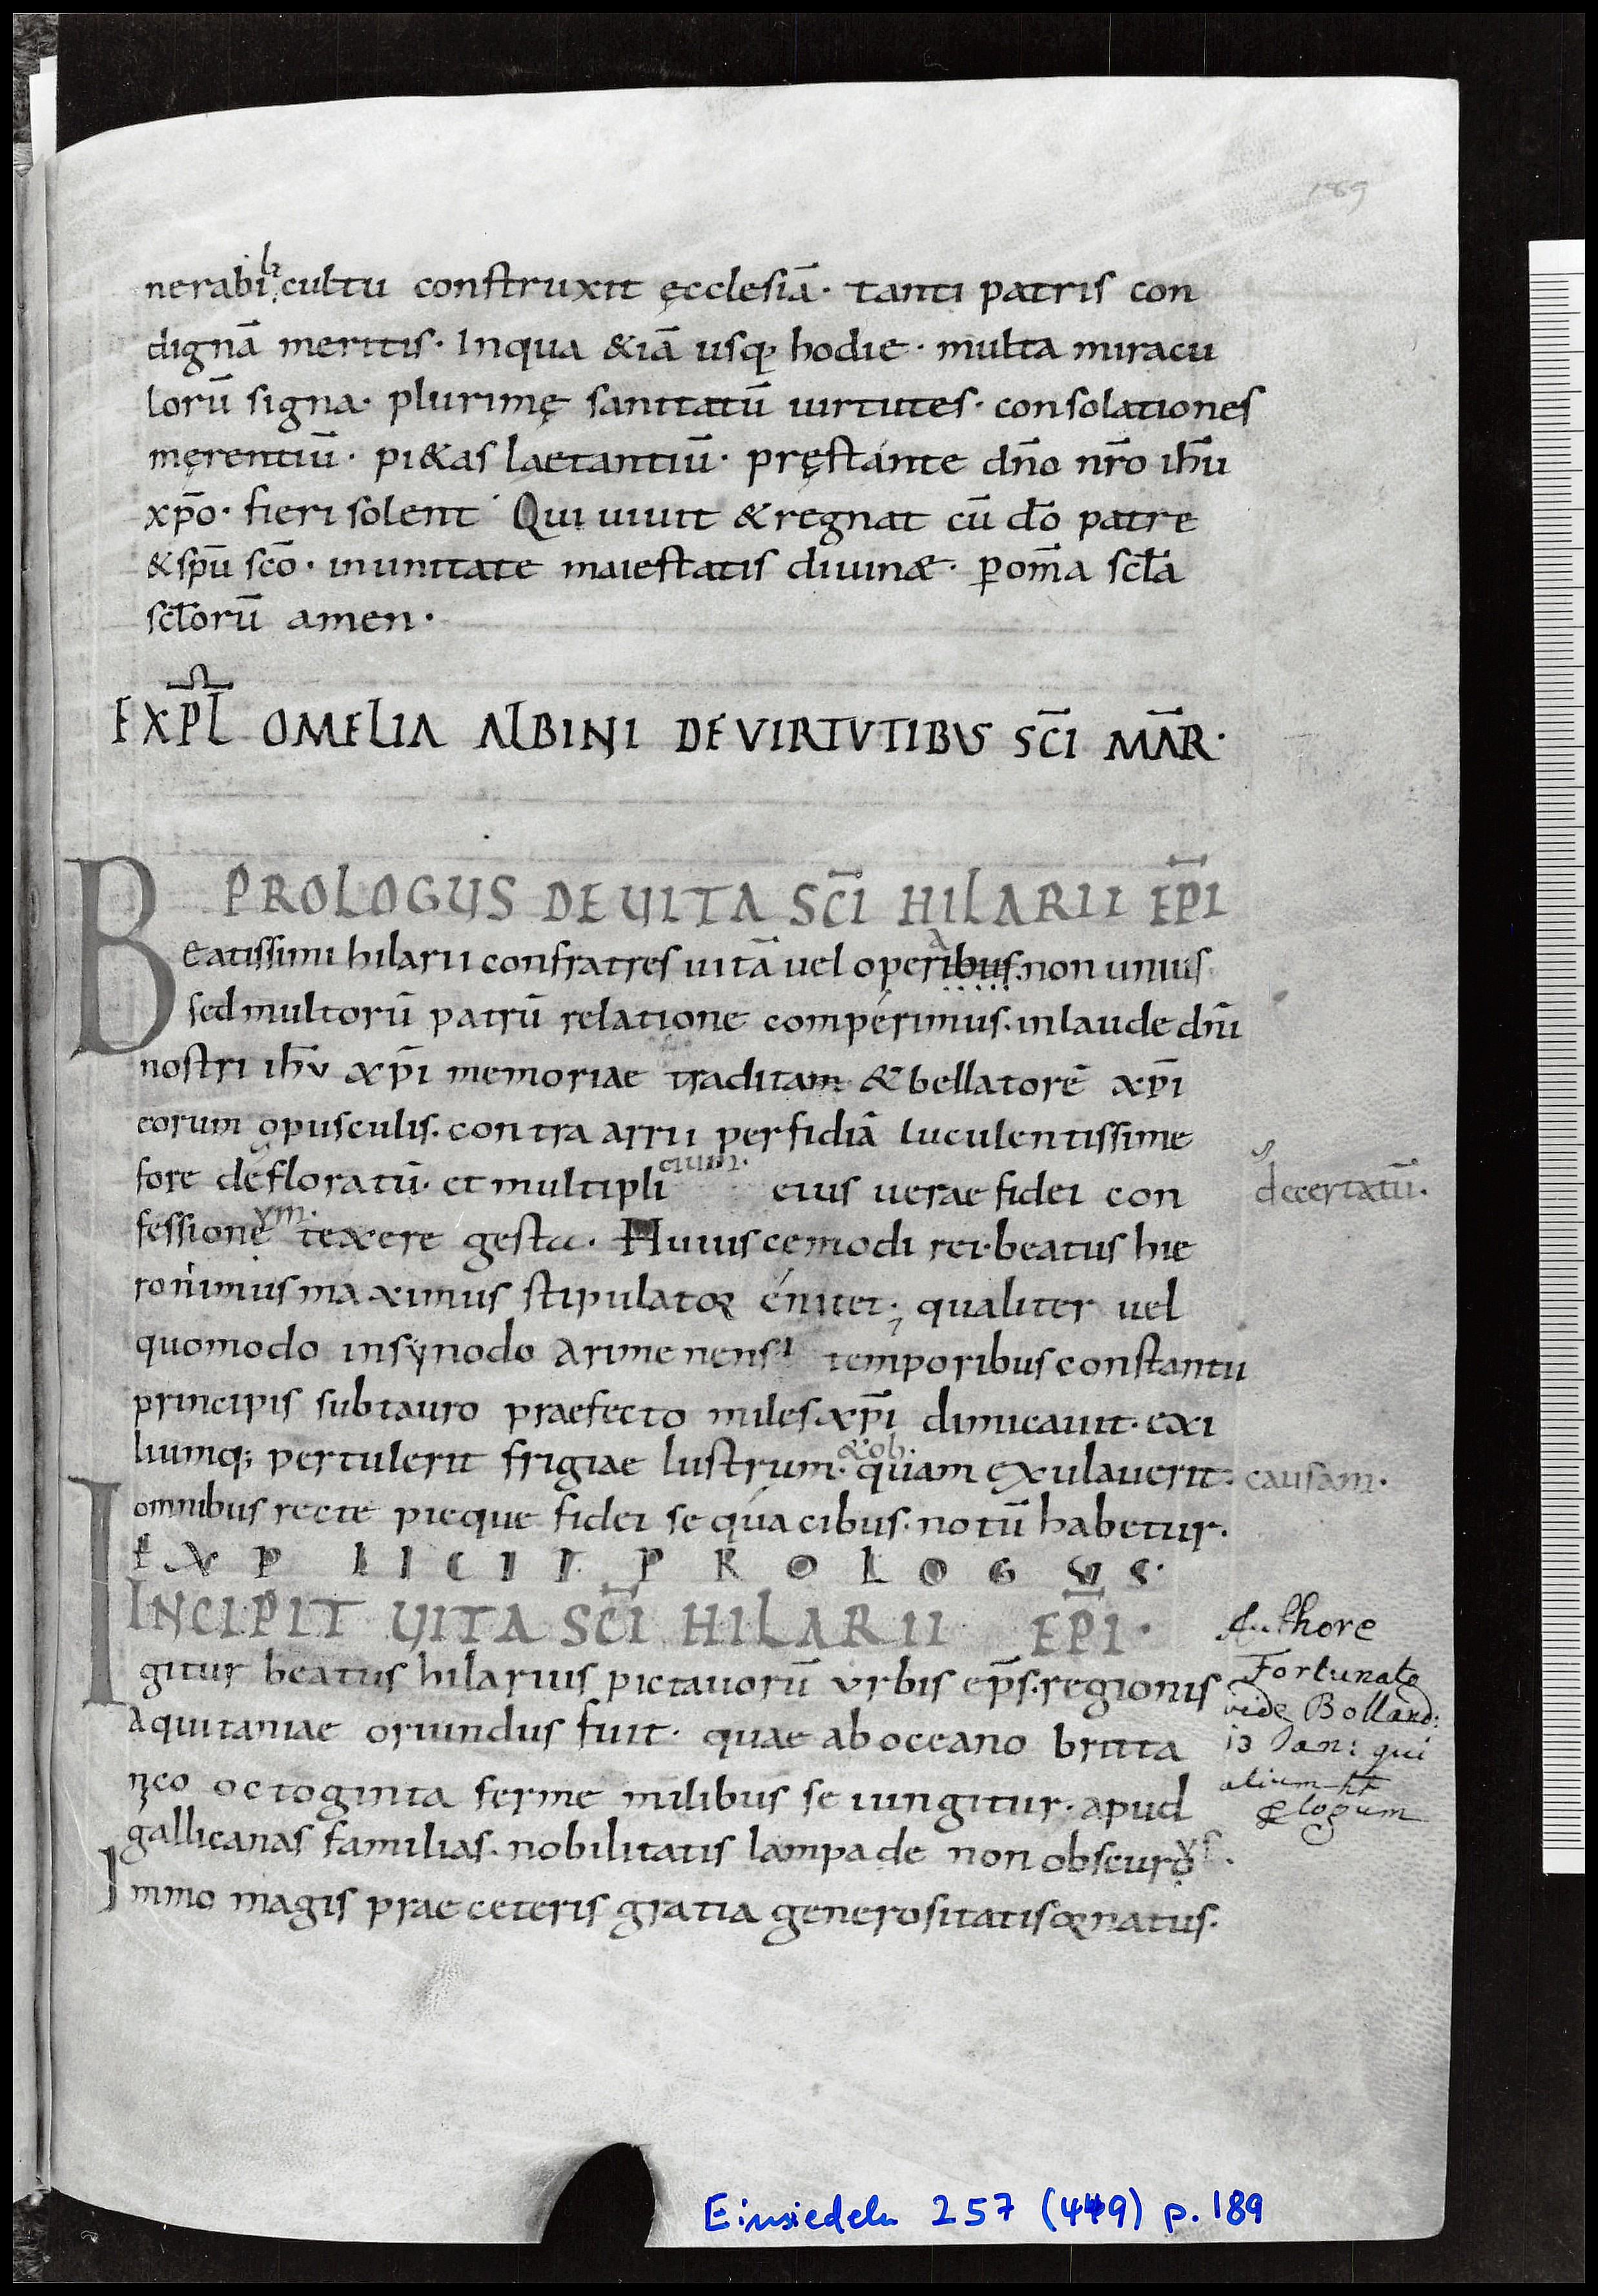 189
nerabilẹ cultu construxit ęcclesiā· tanti patris con
dignā meritis· Inqua &iā usq; hodie· multa miracu
lorū signa· plurimę sanitatū uirtutes· consolationes
męrentiū· pi&as laetantiū· pręstánte dn̄o nr̄o ihū
xp̄o· fieri solent· Qui uiuit & regnat cū do̅ patre
& sp̄u sc̄o· inunitate maiestatis diuinæ· ꝑ om̄a scl̄a
scl̄orū amen·
EXPL̄ OMELIA ALBINI DEVIRTVTIBVS SC̄I MĀR·
PROLOGUS DE UITA SC̄I HILARII EP̄I
Beatissimi hilarii confratres uitā uel operạịḅụṣ· non unius
a
sed multorū patrū relatione compérimus· inlaude dn̄i
nostri ihv̄ xp̄i memoriae traditam & bellatorē xp̄i
eorum opusculis· contra arrii perfidiā luculentissime
fore défloratū· et multipli cium· eius uerae fidei con
decertatū·
fessionẹ ym· texere gesta· Huiuscemodi rei· beatus hie
ronimus maximus stipulator énitet; qualiter uel
quomodo insynodo Arimenensi temporibus constantii
principis subtauro praefecto miles xp̄i dimicauit· exi
liumq; pertulerit frigiae lustrum· &ob· quam exulauerit: causam·
omnibus recte pieque fidei sequácibus· notū habetur·
EXPLICIT PROLOGUS·
INCIPIT UITA SC̄I HILARII EP̄I·
Igitur beatus hilarius pictauorū vrbis ep̄s· regionis
Aquitaniae oriundus fuit· quae ab oceano britta
nico octoginta ferme milibus se iungitur· apud
gallicanas familias· nobilitatis lampade non obscurọ vs·
Immo magis prae ceteris gratia generositatis ornatus·
Authore
Fortunato
vide Bolland:
13 Jan: qui
alium ht
Einsiedeln 257 (449) p. 189